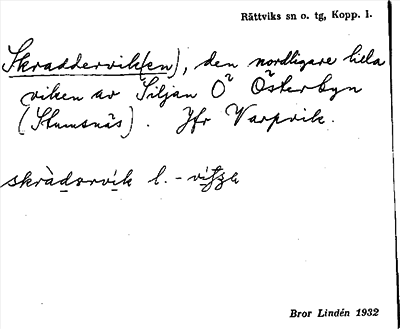 Rättviks sn o. tg, Kopp. l.
Skraddervik(en), den nordligare hela
viken av Siljan O Österbyn
(Stumsnäs). Jfr Varpvik.
skràdərvik l. -
Bror Lindén 1932